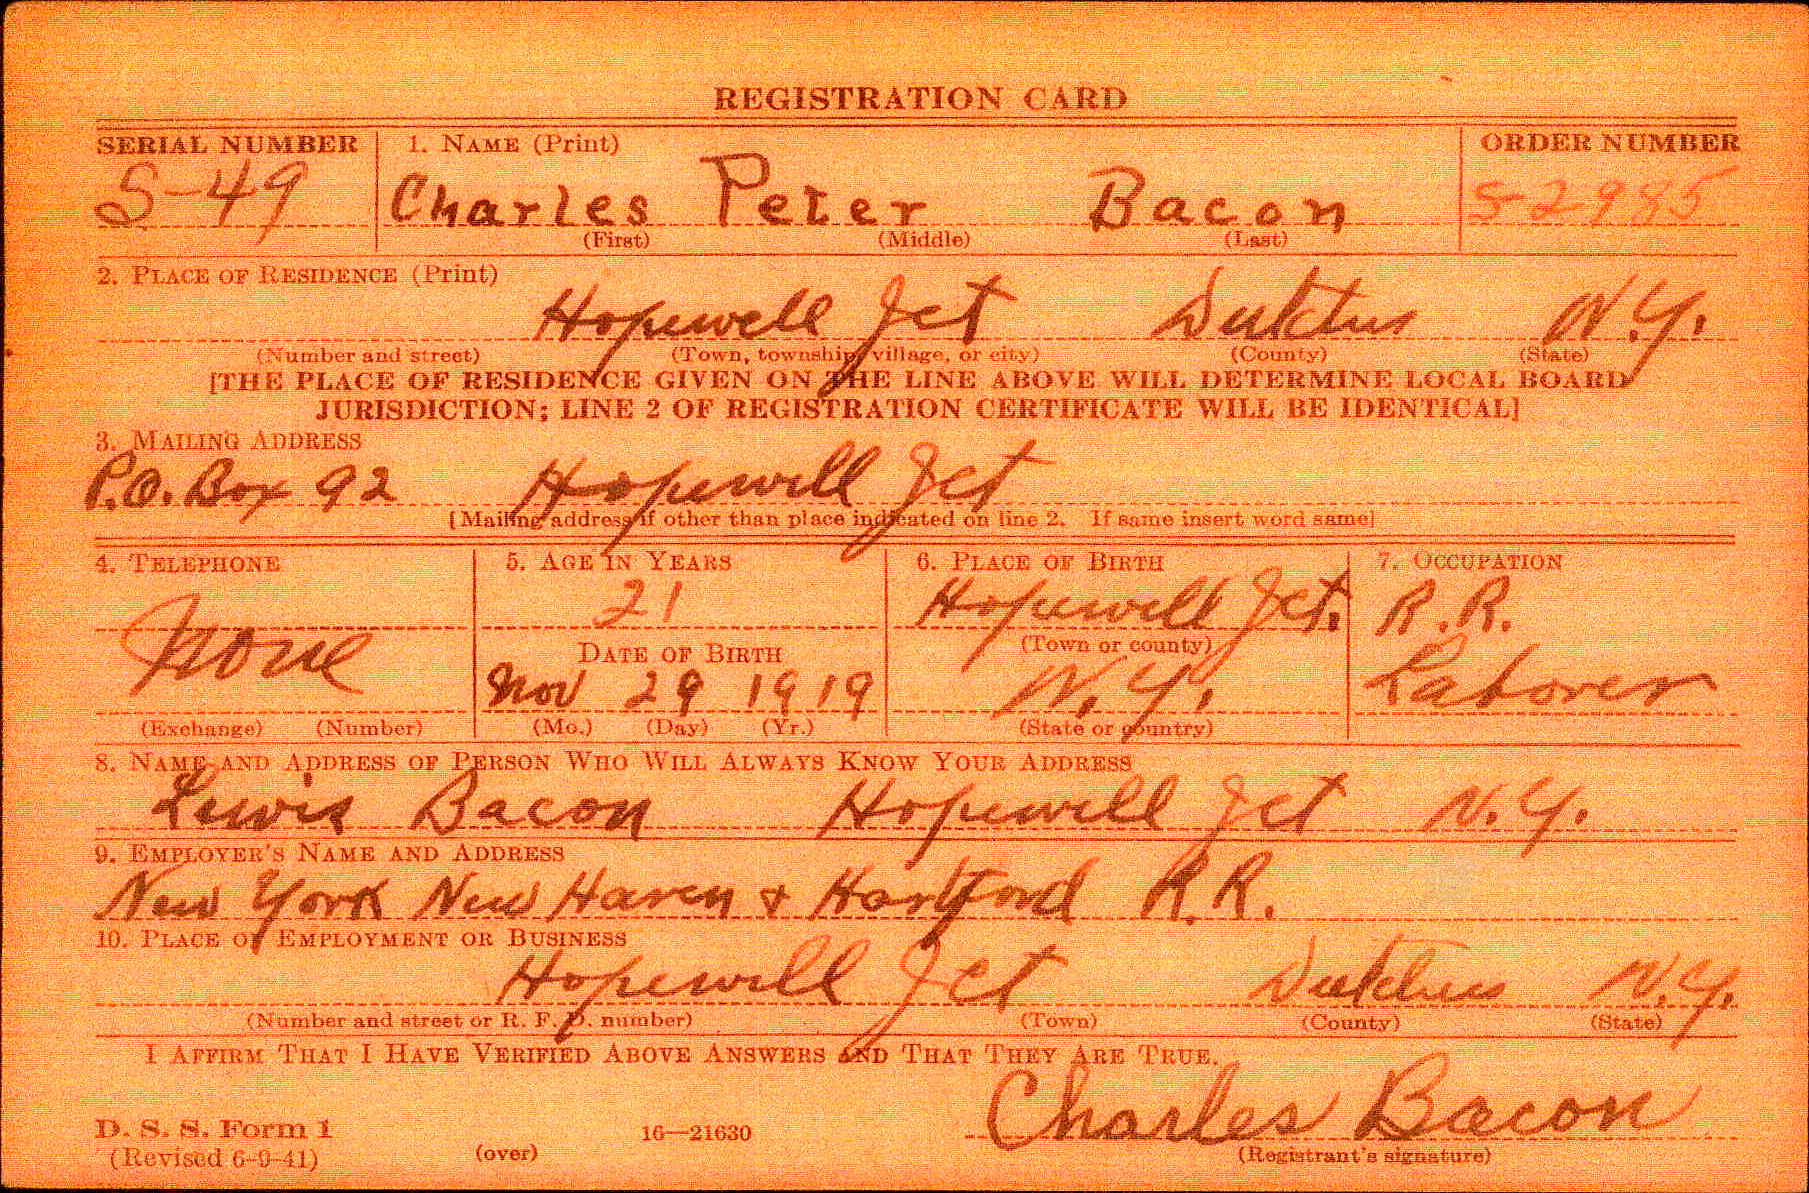 REGISTRATION CARD
SERIAL NUMBER 1. NAME (Print) ORDER NUMBER
S-49 Charles Peter Bacon S-2985
(First) (Middle) (Last)
2. PLACE OF RESIDENCE (Print)
Hopewell Jct Dutchess N.Y.
(Number and street) (Town, township, village, or city) (County) (State)
[THE PLACE OF RESIDENCE GIVEN ON THE LINE ABOVE WILL DETERMINE LOCAL BOARD
JURISDICTION; LINE 2 OF REGISTRATION CERTIFICATE WILL BE IDENTICAL]
3. MAILING ADDRESS
P.O. Box 92 Hopewell Jct
[Mailing address if other than place indicated on line 2. If same insert word same]
4. TELEPHONE 5. AGE IN YEARS 6. PLACE OF BIRTH 7. OCCUPATION
21 Hopewell Jct. R.R.
(Town or county)
None DATE OF BIRTH
Nov 29 1919 N.Y. Laborer
(Exchange) (Number) (Mo.) (Day) (Yr.) (State or country)
8. NAME AND ADDRESS OF PERSON WHO WILL ALWAYS KNOW YOUR ADDRESS
Lewis Bacon Hopewell Jct N.Y.
9. EMPLOYER'S NAME AND ADDRESS
New York New Haven & Hartford R.R.
10. PLACE OF EMPLOYMENT OR BUSINESS
Hopewell Jct Dutchess N.Y.
(Number and street or R. F. D. number) (Town) (County) (State)
I AFFIRM THAT I HAVE VERIFIED ABOVE ANSWERS AND THAT THEY ARE TRUE.
Charles Bacon
D. S. S. Form 1
(Revised 6-9-41) (over) 16—21630 (Registrant's signature)